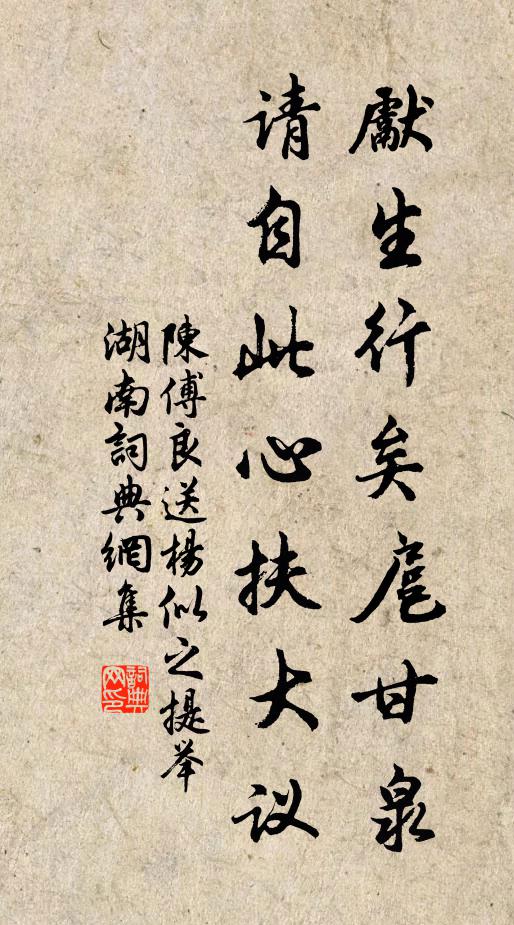 獻生行矣扈甘泉
请自此心扶大议
陳傅良送楊似之提举
湖南詞典網集
詞典网印